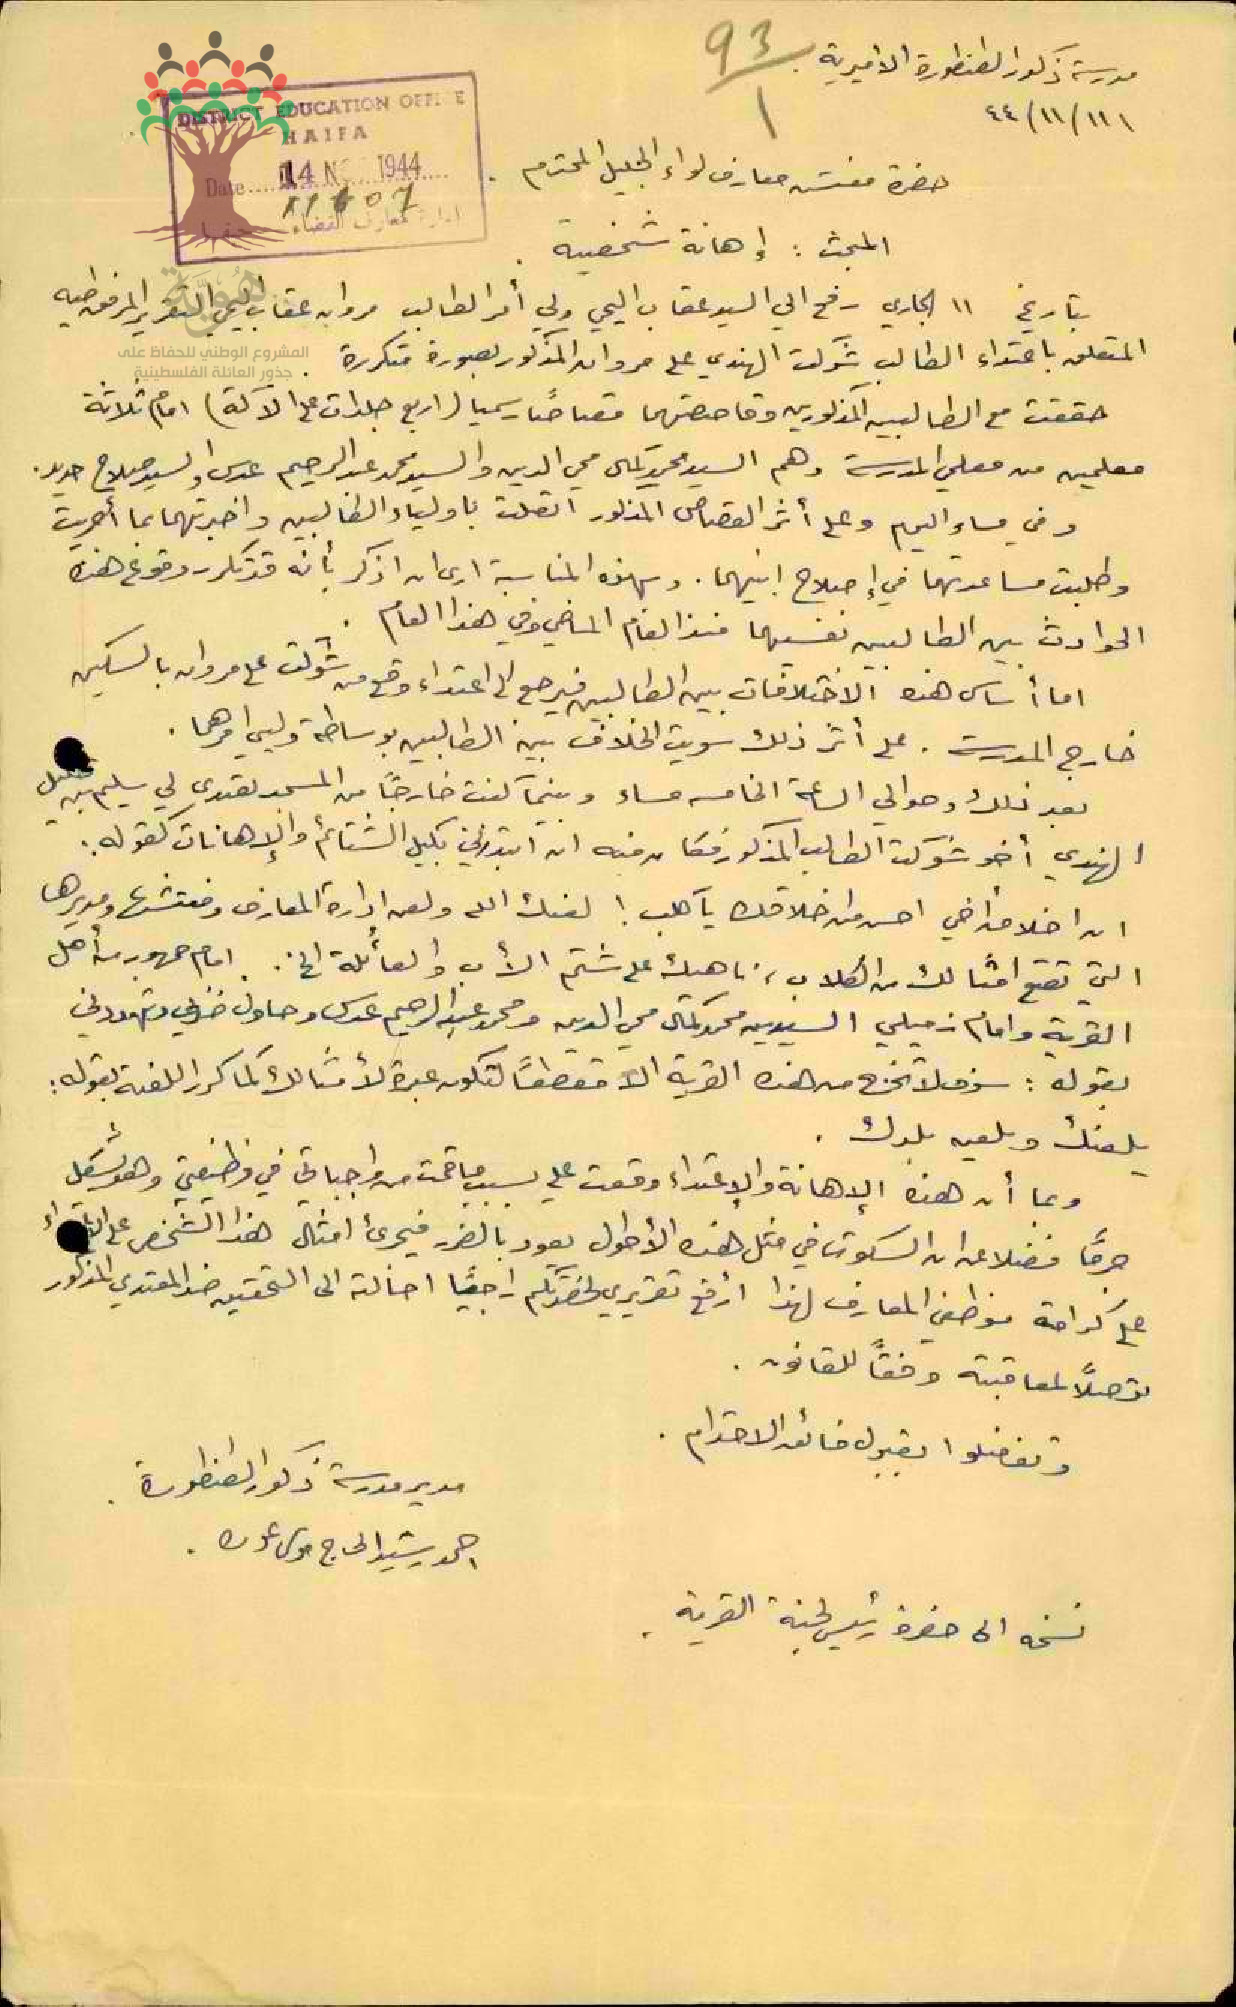 93
1
مدرسة ذكور الطنطورة الاميرية .
١١/١١/٤٤
DISTRICT EDUCATION OFFICE
HAIFA
Date 14 NO 1944
11607
ادارة معارف القضاء حيفا
هُوِيَّة
المشروع الوطني للحفاظ على
جذور العائلة الفلسطينية
حضرة مفتش معارف لواء الجليل المحترم .
المبحث : إهانة شخصية .
بتاريخ ١١ الجاري رفع الي السيد عقاب اليحي ولي أمر الطالب مروان عقاب اليحي التقرير المرفق طيه
المتعلق باعتداء الطالب شوكت الهندي على مروان المذكور بصورة متكررة .
حققت مع الطالبين المذكورين وقاصصتهما قصاصًا رسميا (اربع جلدات على الأكفة) امام ثلاثة
معلمين من معلمي المدرسة وهم السيد محمد كمال محي الدين والسيد محمد عبد الرحيم عدس والسيد صلاح
وفي مساء اليوم وعلى أثر القصاص المذكور اتصلت باولياء الطالبين واخبرتهما بما أجريت
وطلبت مساعدتهما في إصلاح ابنيهما . وبهذه المناسبة ارى ان اذكر بأنه قد تكرر وقوع هذه
الحوادث بين الطالبين نفسيهما منذ العام الماضي وفي هذا العام .
اما أساس هذه الاختلافات بين الطالبين فيرجع الى اعتداء وقع من شوكت على مروان بالسكين
خارج المدرسة . على أثر ذلك سويت الخلاف بين الطالبين بوساطة وليي امرهما .
بعد ذلك وحوالي الساعة الخامسة مساء وبينما كنت خارجًا من المسجد تصدى لي سليم
الهندي أخو شوكت الطالب المذكور فكان منه ان ابتدرني بكيل الشتائم والإهانات كقوله :
ان اخلاق أخي احسن من اخلاقك يا كلب ! لعنك الله ولعن ادارة المعارف ومفتشها ومديرها
التي تضع امثالك من الكلاب ، ناهيك على شتم الأب والعائلة الخ . امام جمهور من أهل
القرية وامام زميلي السيدين محمد كمال محي الدين ومحمد عبد الرحيم عدس وحاول ضربي وتهددني
بقوله : سوف لا تخرج من هذه القرية الا مقطعًا لتكون عبرة لأمثالك كما كرر اللعنة بقوله :
يلعنك ويلعن بلدك .
وبما أن هذه الإهانة والإعتداء وقعت علي بسبب ما قمت من واجباتي في وظيفتي وهو يشكل
جرمًا فضلا عن ان السكوت في مثل هذه الأحوال يعود بالضرر فيجرئ امثال هذا الشخص على الاعتداء
على كرامة موظفي المعارف لهذا ارفع تقريري لحضرتكم راجيًا احالته الى التحقيق ضد المعتدي المذكور
توصلًا لمعاقبته وفقًا للقانون .
وتفضلوا بقبول فائق الاحترام .
مدير مدرسة ذكور الطنطورة .
احمد رشيد الحاج
نسخه الى حضرة رئيس لجنة القرية .